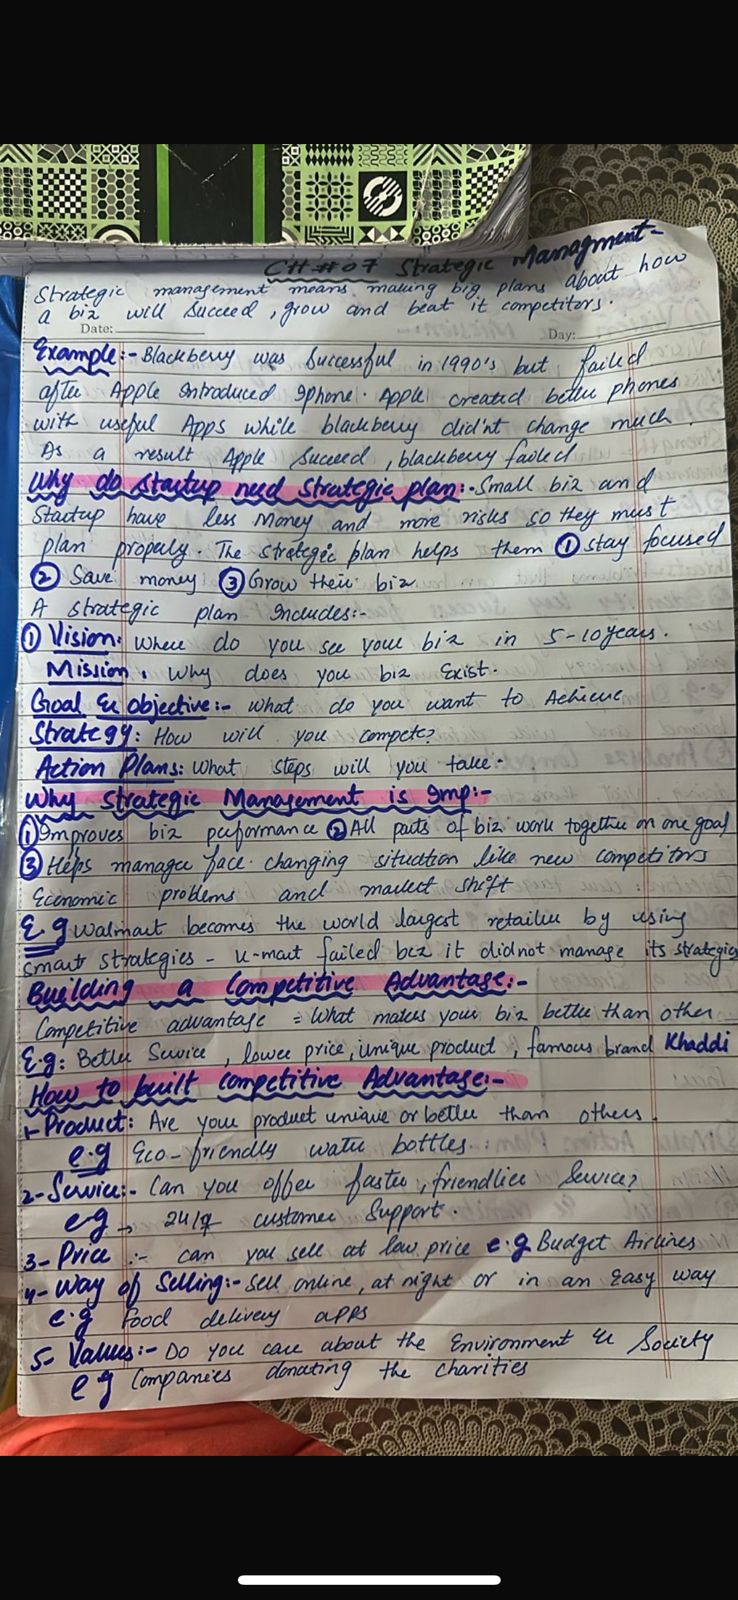 CH#07 Strategic Managment-
Strategic management means making big plans about how
a biz will succeed, grow and beat it competitors.
Date:
Day:
Example:- Blackberry was successful in 1990's but failed
after Apple Introduced Iphone. Apple created better phones
with useful Apps while blackberry did'nt change much.
As a result Apple succeed, blackberry failed
Why do startup need Strategic plan:- Small biz and
Startup have less money and more risks so they must
plan properly. The strategic plan helps them ① stay focused
② Save money ③ Grow their biz
A strategic plan Includes:-
① Vision: Where do you see your biz in 5-10 years.
Mission: Why does you biz Exist.
Goal & objective:- what do you want to Achieve
Strategy: How will you compete?
Action Plans: What steps will you take.
Why strategic Management is Imp:-
① Improves biz performance ② All parts of biz work together on one goal
③ Helps manager face changing situation like new competitors
Economic problems and market shift
E.g Walmart becomes the world largest retailer by using
smart strategies - K-mart failed bcz it didnot manage its strategies
Building a Competitive Advantage:-
Competitive advantage = What makes your biz better than other
E.g: Better Service, lower price, unique product, famous brand Khaddi
How to built Competitive Advantage:-
1- Product: Are your product unique or better than others.
e.g Eco-friendly water bottles.
2- Service:- Can you offer faster, friendlier Service?
eg → 24/7 customer Support.
3- Price :- can you sell at low price e.g Budget Airlines
4- Way of Selling:- Sell online, at night or in an Easy way
e.g Food delivery apps
5- Values:- Do you care about the Environment & Society
eg Companies donating the charities